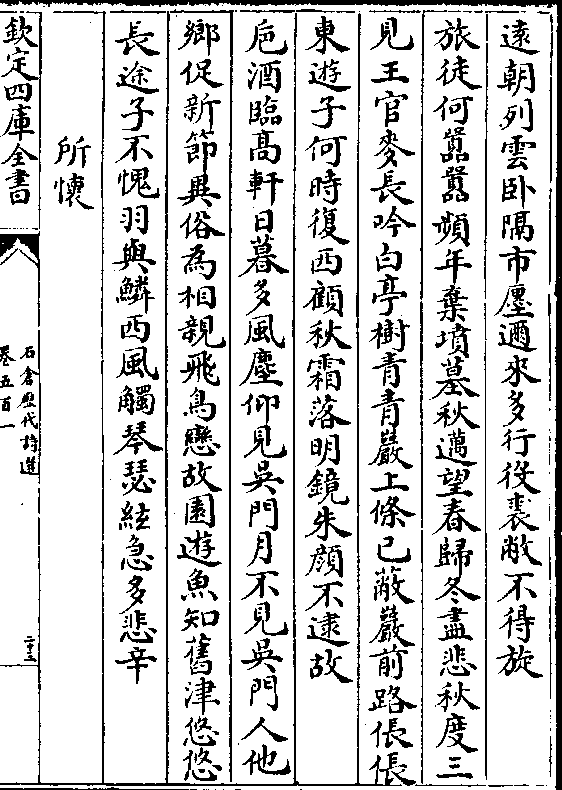 遠朝列雲卧隔市廛邇來多行役裘敝不得旋
旅徒何囂囂頻年棄墳墓秋邁望春歸冬盡悲秋度三
見王官麥長吟白亭樹青青巖上條已蔽巖前路倀倀
東遊子何時復西顧秋霜落明鏡朱顔不逮故
巵酒臨髙軒日暮多風塵仰見吳門月不見吳門人他
鄉促新節異俗為相親飛鳥戀故園遊魚知舊津悠悠
長途子不愧羽與鱗西風觸琴瑟絃急多悲辛
所懷
欽定四庫全書
石倉歷代詩選
卷五百一
二十三